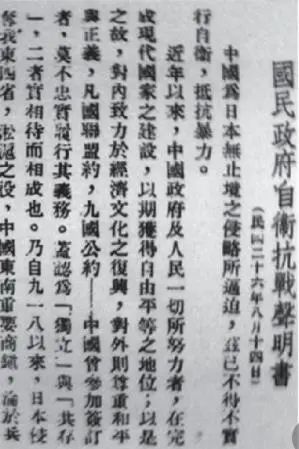 國民政府自衛抗戰聲明書
(民國二十六年八月十四日)
中國爲日本無止境之侵略所逼迫，茲已不得不實
行自衛，抵抗暴力。
近年以來，中國政府及人民一切所努力者，在完
成現代國家之建設，以期獲得自由平等之地位；以是
之故，對內致力於經濟文化之復興，對外則尊重和平
與正義，凡國聯盟約，九國公約——中國曾參加簽訂
者，莫不忠實履行其義務。蓋認爲「獨立」與「共存
」，二者實相待而相成也。乃自九一八以來，日本侵
奪我東四省，淞滬之役，中國東南重要商鎮，淪於兵